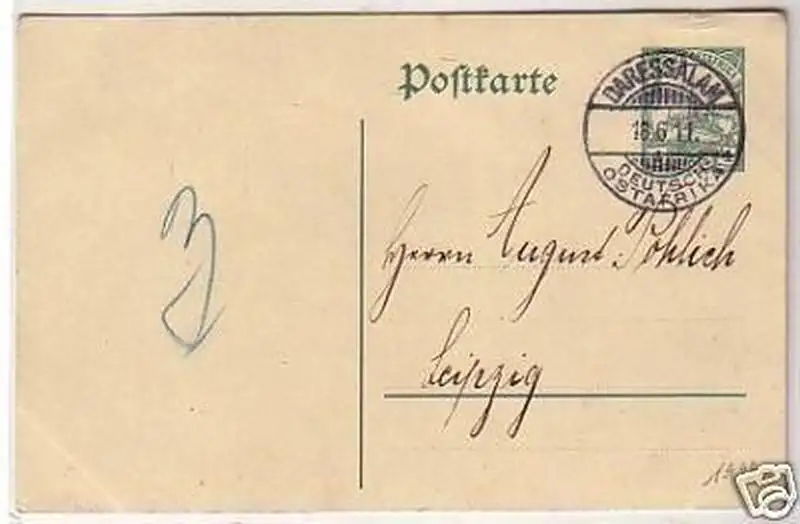 Postkarte
DARESSALAM
16.6 11.
DEUTSCH-
OSTAFRIKA
Herrn August
Leipzig